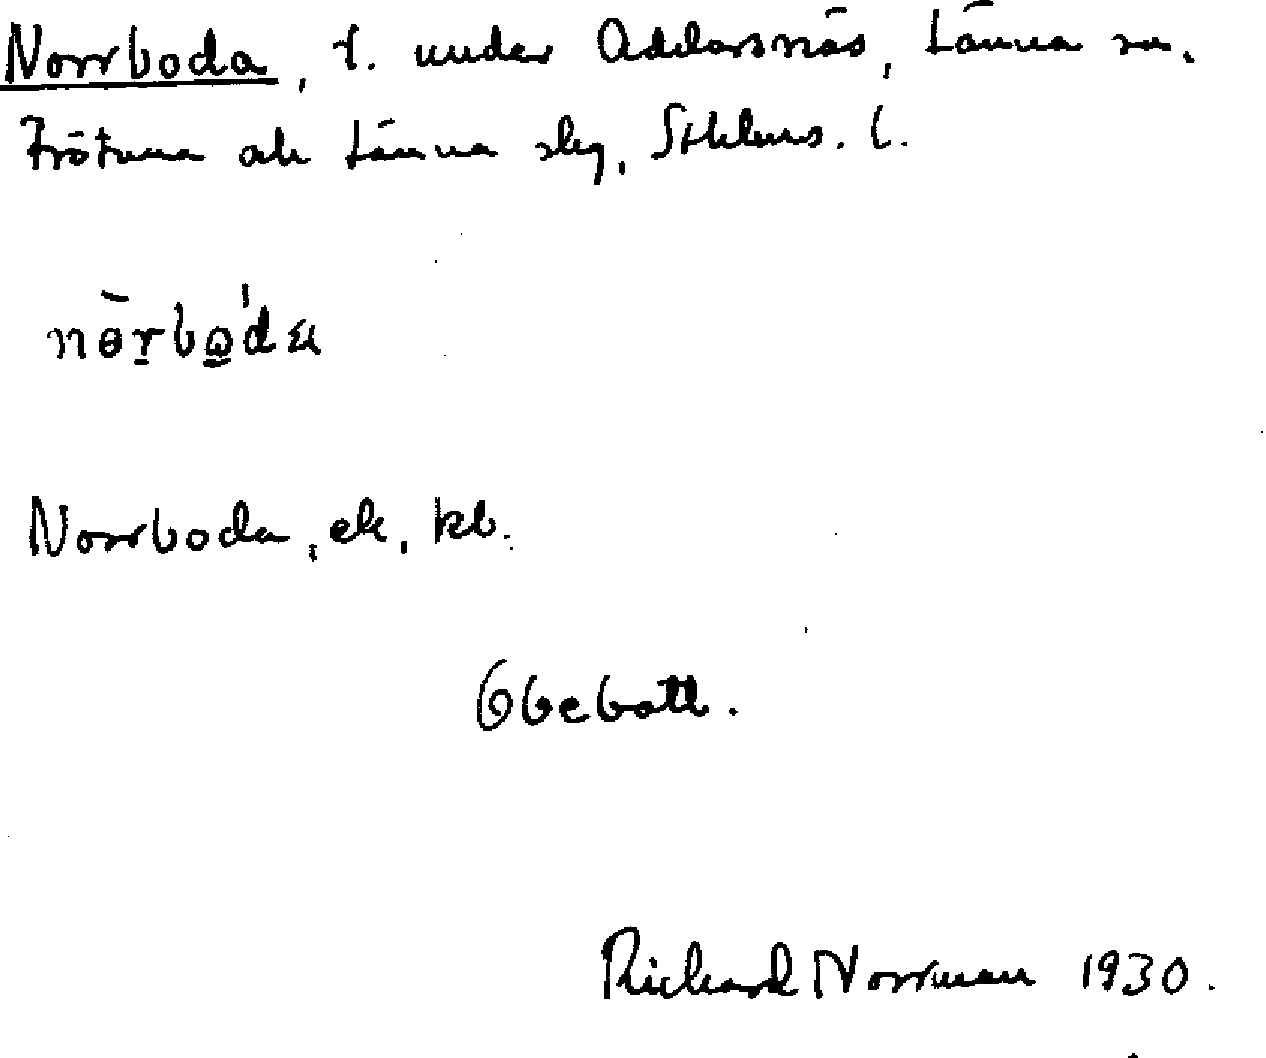 Norrboda, t. under Addarsnäs, Länna sn.
Frötuna och Länna slg, Sthlms. l.
Norrboda, ek, kb.
Obebott.
Richard Norrman 1930.